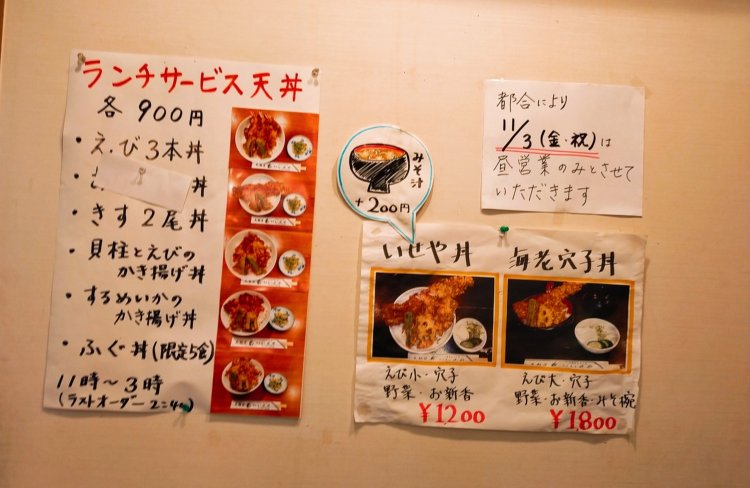 ランチサービス天丼
各900円
・えび3本丼
丼
・きす2尾丼
・貝柱とえびの
かき揚げ丼
・するめいかの
かき揚げ丼
・ふぐ丼(限定5食)
11時〜3時
(ラストオーダー2:40)
みそ汁
+200円
都合により
11/3(金・祝)は
昼営業のみとさせて
いただきます
いせや丼
えび小・穴子
野菜・お新香
¥1200
海老穴子丼
えび大・穴子
野菜・お新香・みそ椀
¥1800